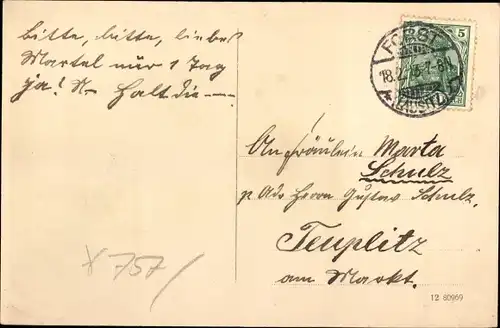 bitte, bitte, liebe
Martel nur 1 Tag
ja!
Halt die
5
FORST
18.2.
7-8
(LAUSITZ)
An Fräulein Marta
Schulz
p Adr Herrn Gustav Schulz,
Teuplitz
am Markt.
757
12 80969